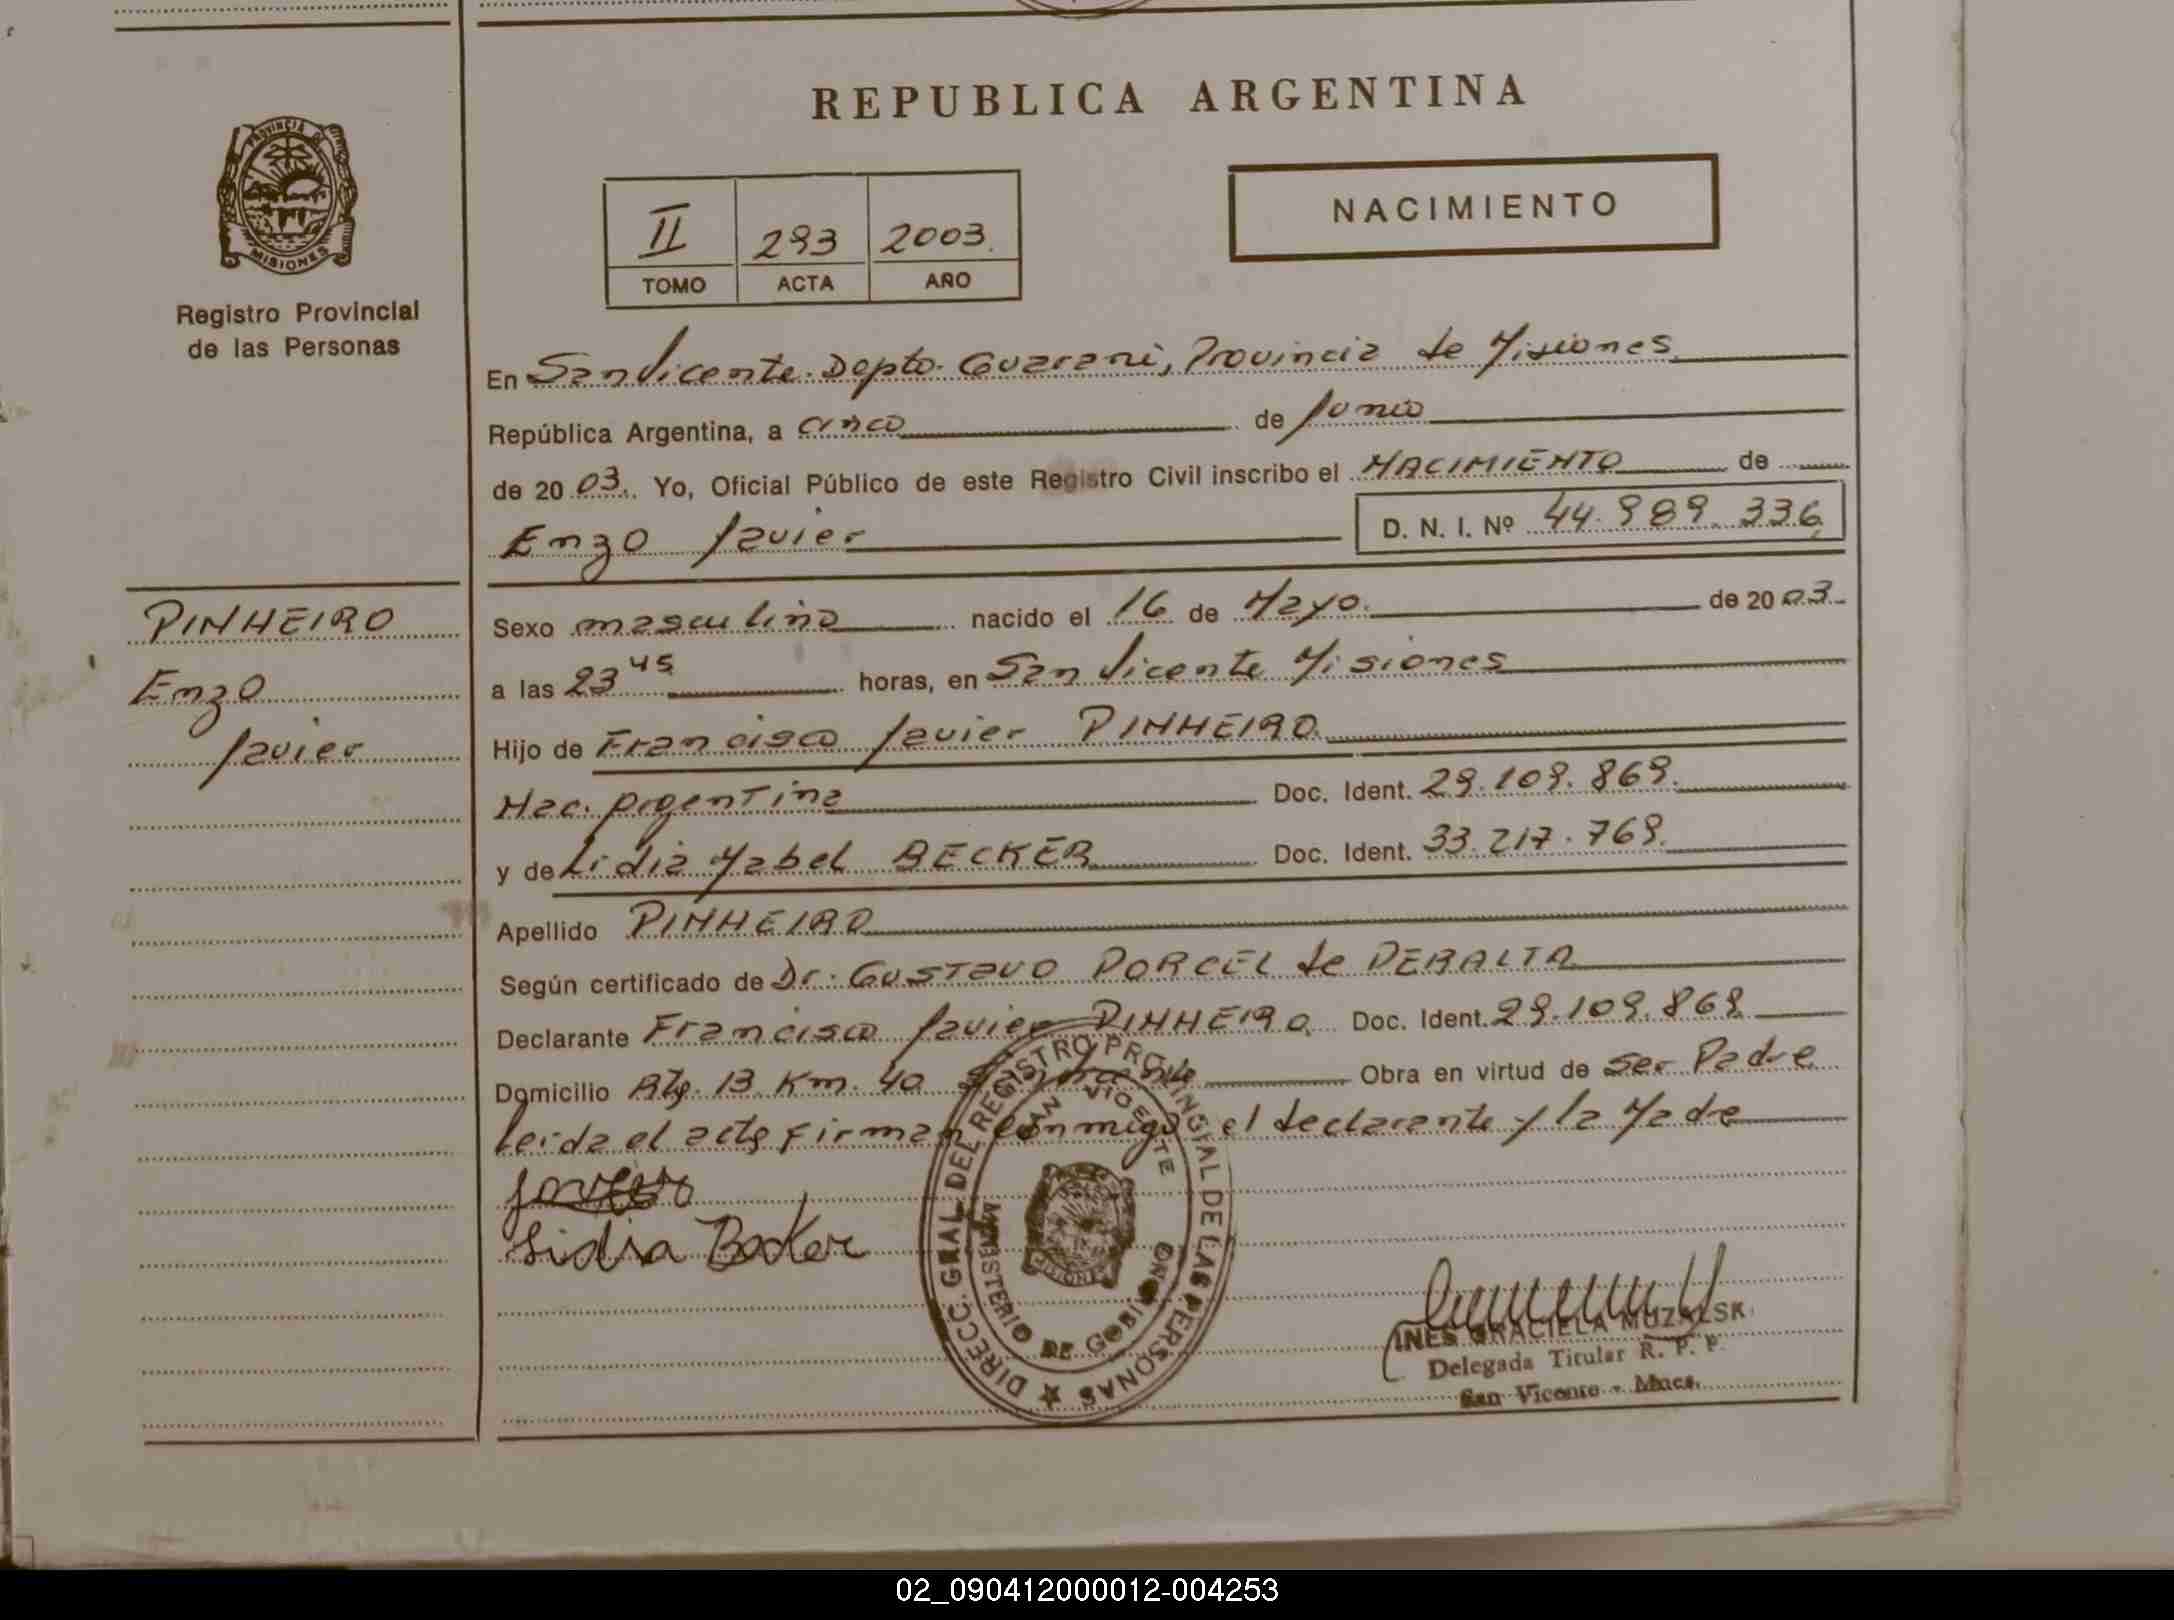 REPUBLICA ARGENTINA
PROVINCIA DE
MISIONES
Registro Provincial
de las Personas
II 293 2003.
TOMO ACTA AÑO
NACIMIENTO
En San Vicente. Depto. Guarani, Provincia de Misiones
República Argentina, a cinco de Junio
de 2003. Yo, Oficial Público de este Registro Civil inscribo el NACIMIENTO de
Enzo Javier D. N. I. Nº 44.989.336
PINHEIRO
Enzo
Javier
Sexo masculino nacido el 16 de Mayo. de 2003
a las 23 45 horas, en San Vicente Misiones
Hijo de Francisco Javier PINHEIRO
Nac. Argentina Doc. Ident. 29.109.869.
y de Lidia Mabel BECKER Doc. Ident. 33.217.769.
Apellido PINHEIRO
Según certificado de Dr. Gustavo PORCEL de PERALTA
Declarante Francisco Javier PINHEIRO Doc. Ident. 29.109.869
Domicilio Rta. 13 Km. 40 Obra en virtud de ser Padre
Leida el acta firman conmigo el declarante y la Madre
Javier
Lidia Becker
DIRECC. GRAL. DEL REGISTRO PROVINCIAL DE LAS PERSONAS
SAN VICENTE
MINISTERIO DE GOBIERNO
MISIONES
INES GRACIELA MUZALSK
Delegada Titular R. P. P.
San Vicente - Mnes.
02_090412000012-004253